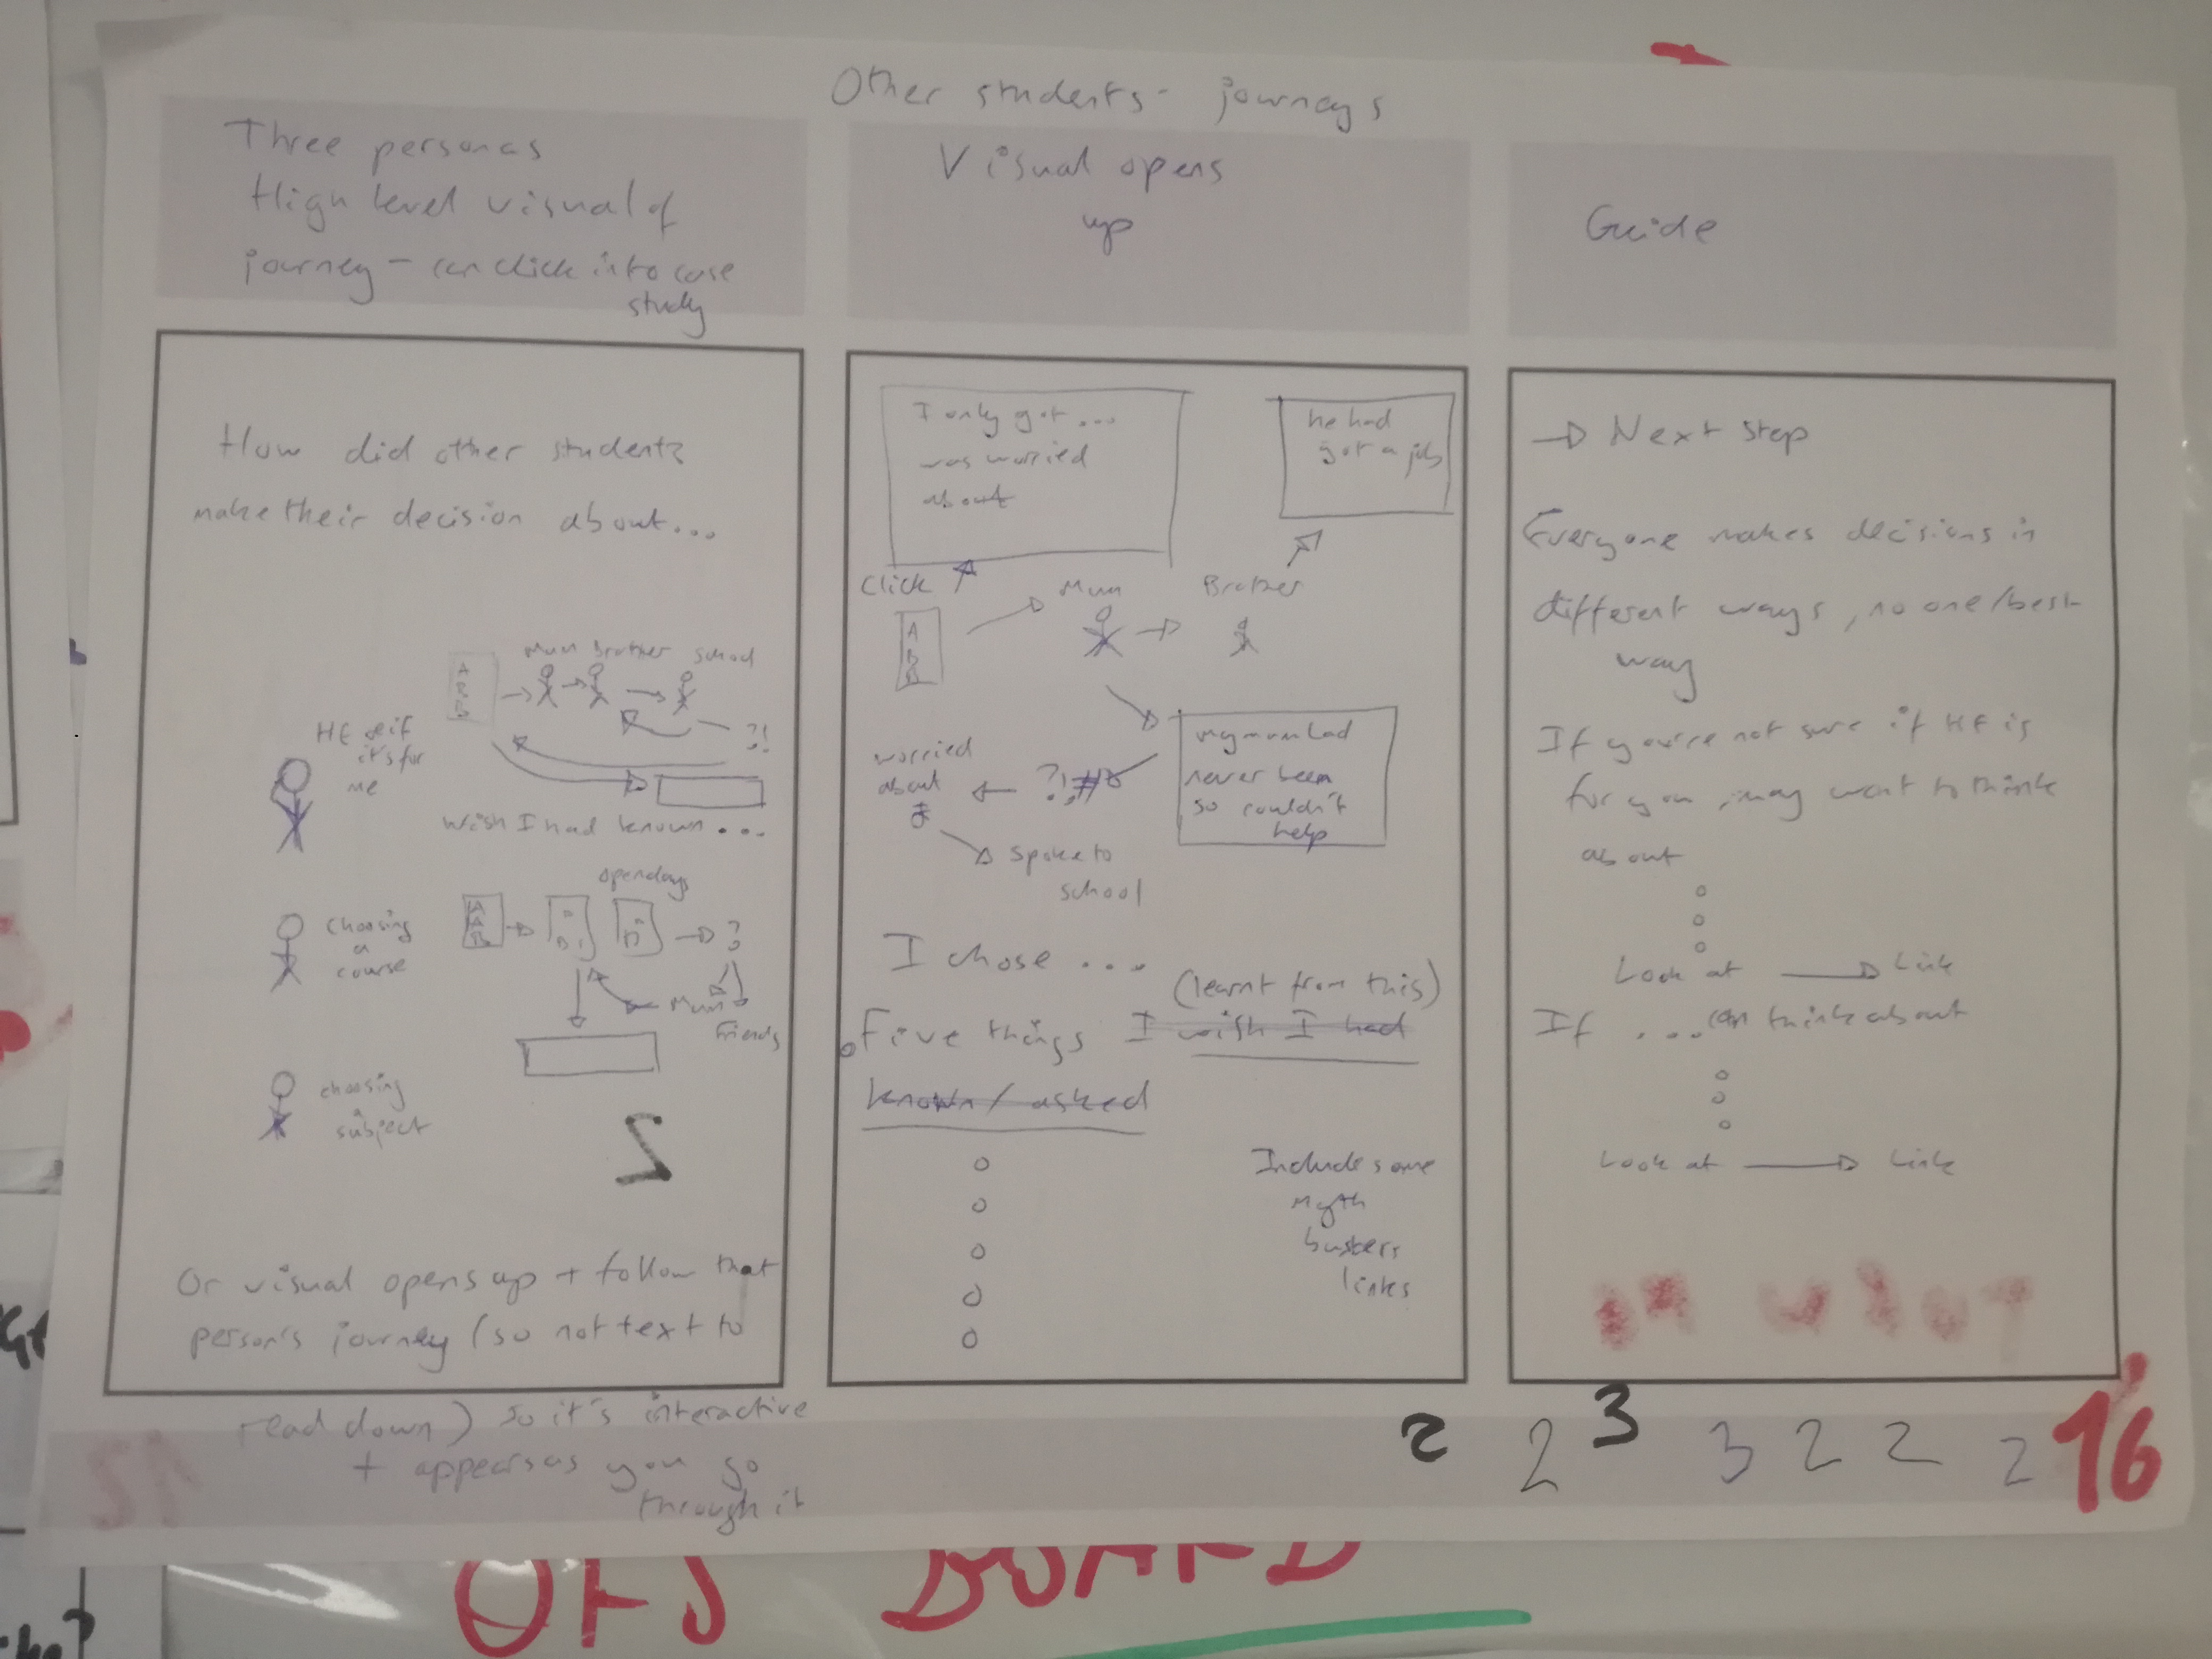 Other students journeys
Three personas
High level visual of
journey - can click into case
study
Visual opens
up
Guide
How did other students
make their decision about...
Mum Brother school
HE
it's for
me
?!
Wish I had known...
open days
choosing
a
course
?
Mum
Friends
choosing
subject
2
Or visual opens up + follow that
person's journey (so not text to
read down) so it's interactive
+ appears as you go
through it
I only got...
was worried
about
he had
got a job
Click
Mum
Brother
A
B
B
my mum had
never been
so couldn't
help
worried
about
£
?!
spoke to
school
I chose...
(learnt from this)
Five things I wish I had
known / asked
Include some
myth
busters
links
→ Next step
Everyone makes decisions in
different ways, no one/best
way
If you're not sure if HE is
for you, may want to think
about
Look at → Link
If .... can think about
Look at → Link
2 2 3 3 2 2 2 16
OFS BOARD